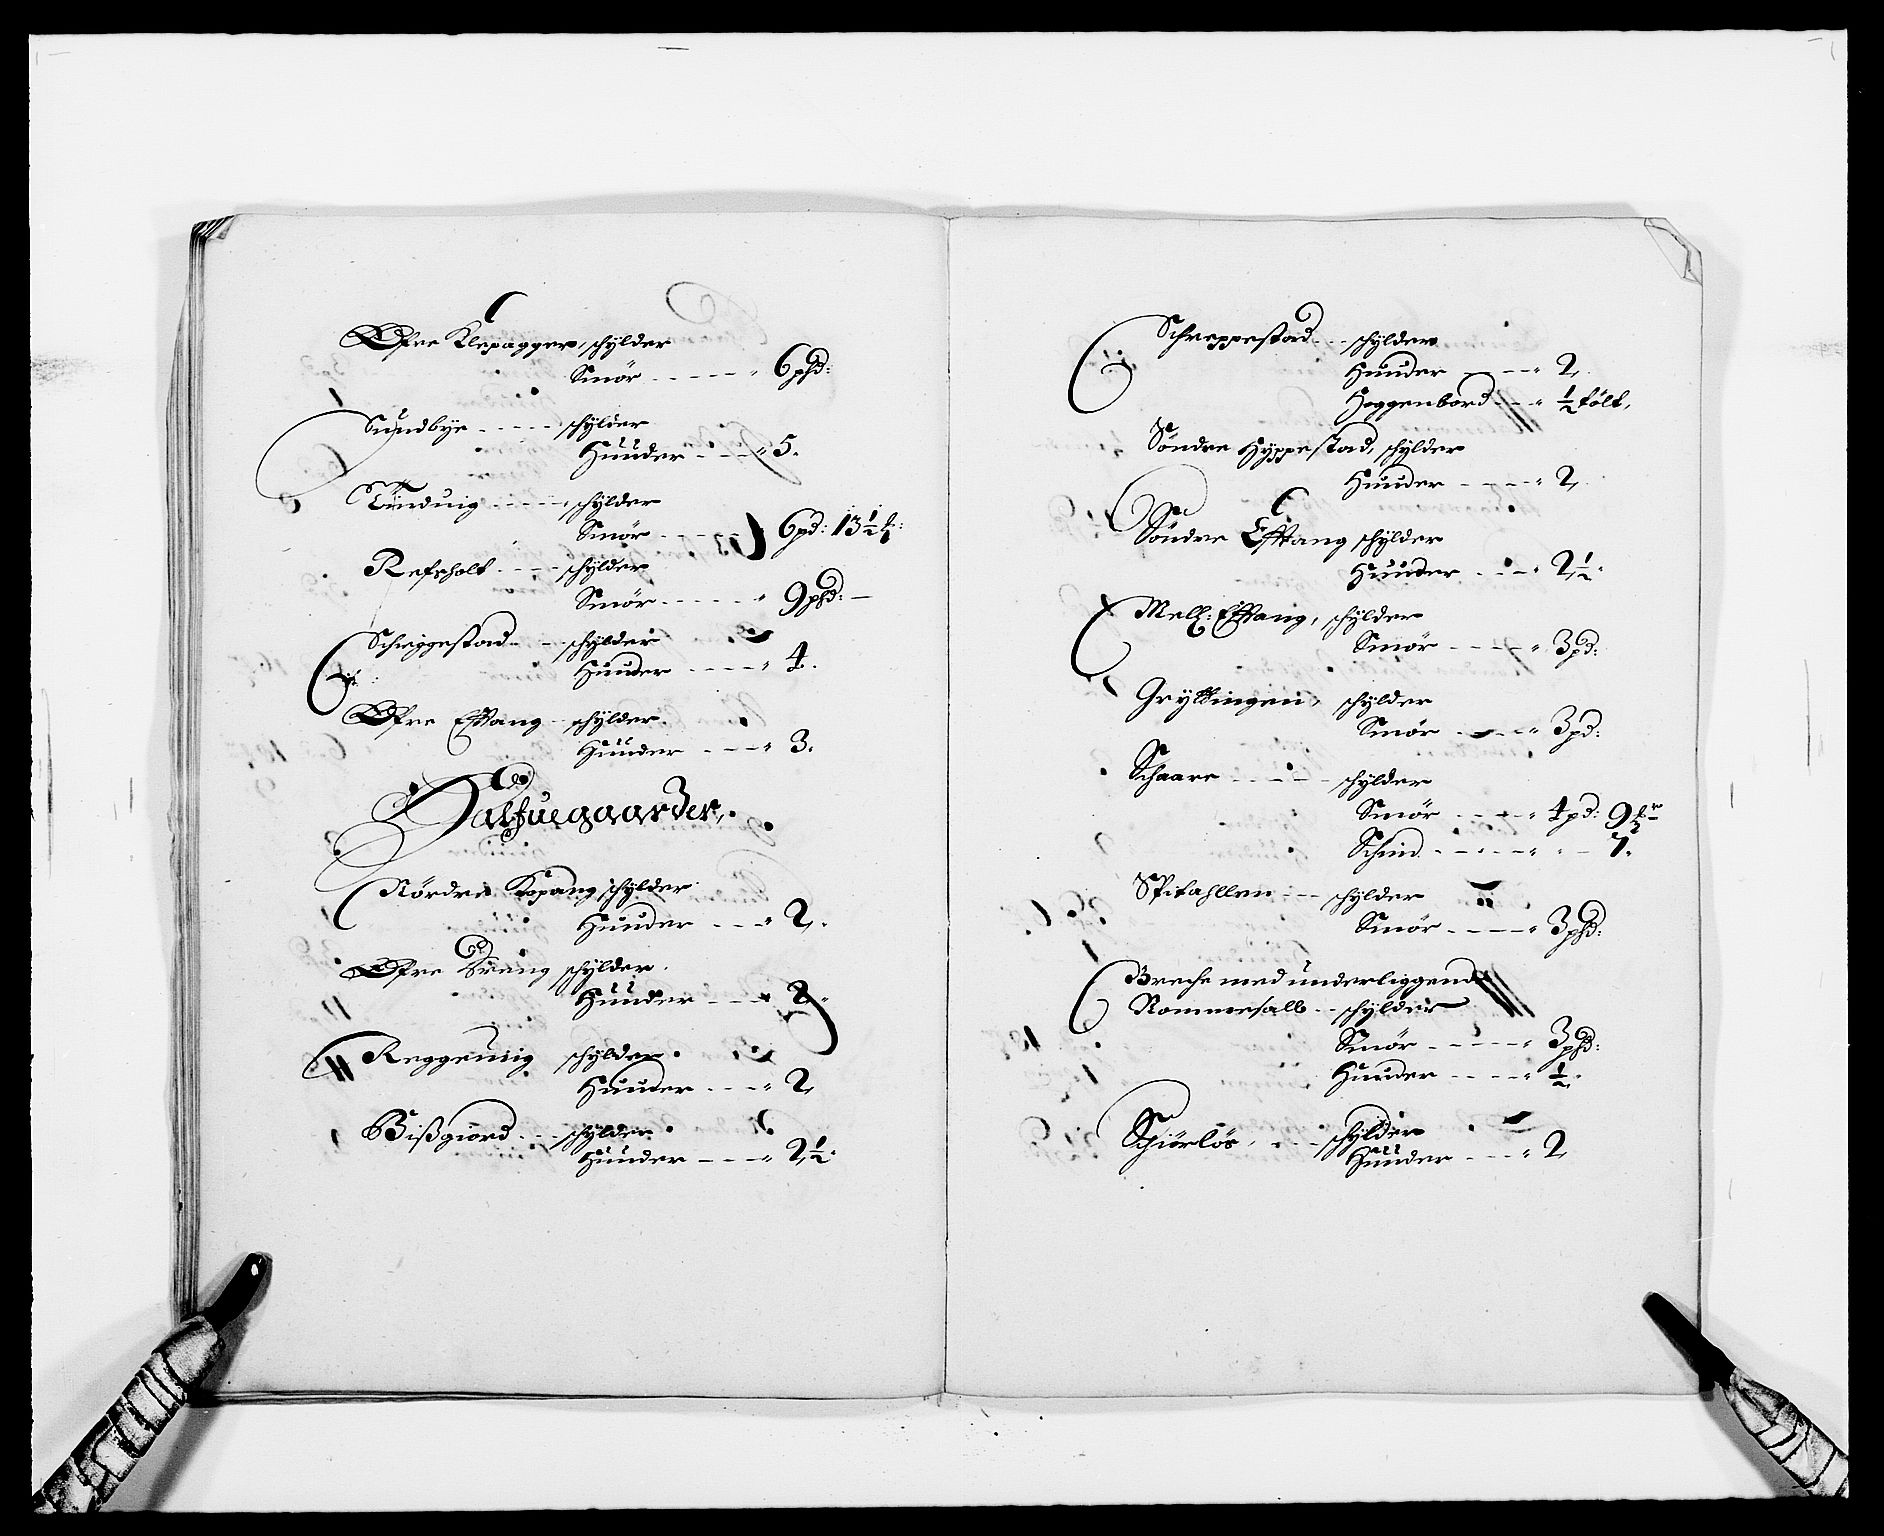 Øfre Klepagger, schylder
Smör - - - - - " 6 phd:
Sundbye - - - - - schylder
Huuder - - - " 5.
Tinduig - - - - schylder
Smör - - - - - 6 pd: 13 ½
Refsholt - - - - schylder
Smör - - - - - " 9 phd: —
Scheggestad - - - schylder
Huuder - - - - " 4.
Øfre Effang - schylder.
Huuder - - - " 3.
Halfuegaarder,
Nördre Kopang schylder
Huuder - - - " 2.
Øfre schylder.
Huuder - - - 2
Reggeuiig schylder.
Huuder - - - " 2
Bißgiord - - - schylder
Huuder - - - " 2½
Schreppestad - - - schylder
Huuder - - - " 2.
Hoggenbord - - " ½ tölt,
Söndre Hyppestad, schylder
Huuder - - - - " 2.
Söndre Effang schylder
Huuder - - - " 2½
Mell: Effang, schylder
Smör - - - - " 3 pd:
Gryttingen, schylder
Smör - - - - " 3 pd:
Schaare - - - - schylder
Smör - - - - " 4 pd: 9
Schind - - - - " - 7.
Spitahllen - - - schylder
Smör - - - - " 3 phd:
Breche med underliggende
Rommesalb - - schylder
Smör - - - - " 3 phd:
Huuder - - - - " ½.
Schiörlös, - - - schylder
Huuder - - - " 2